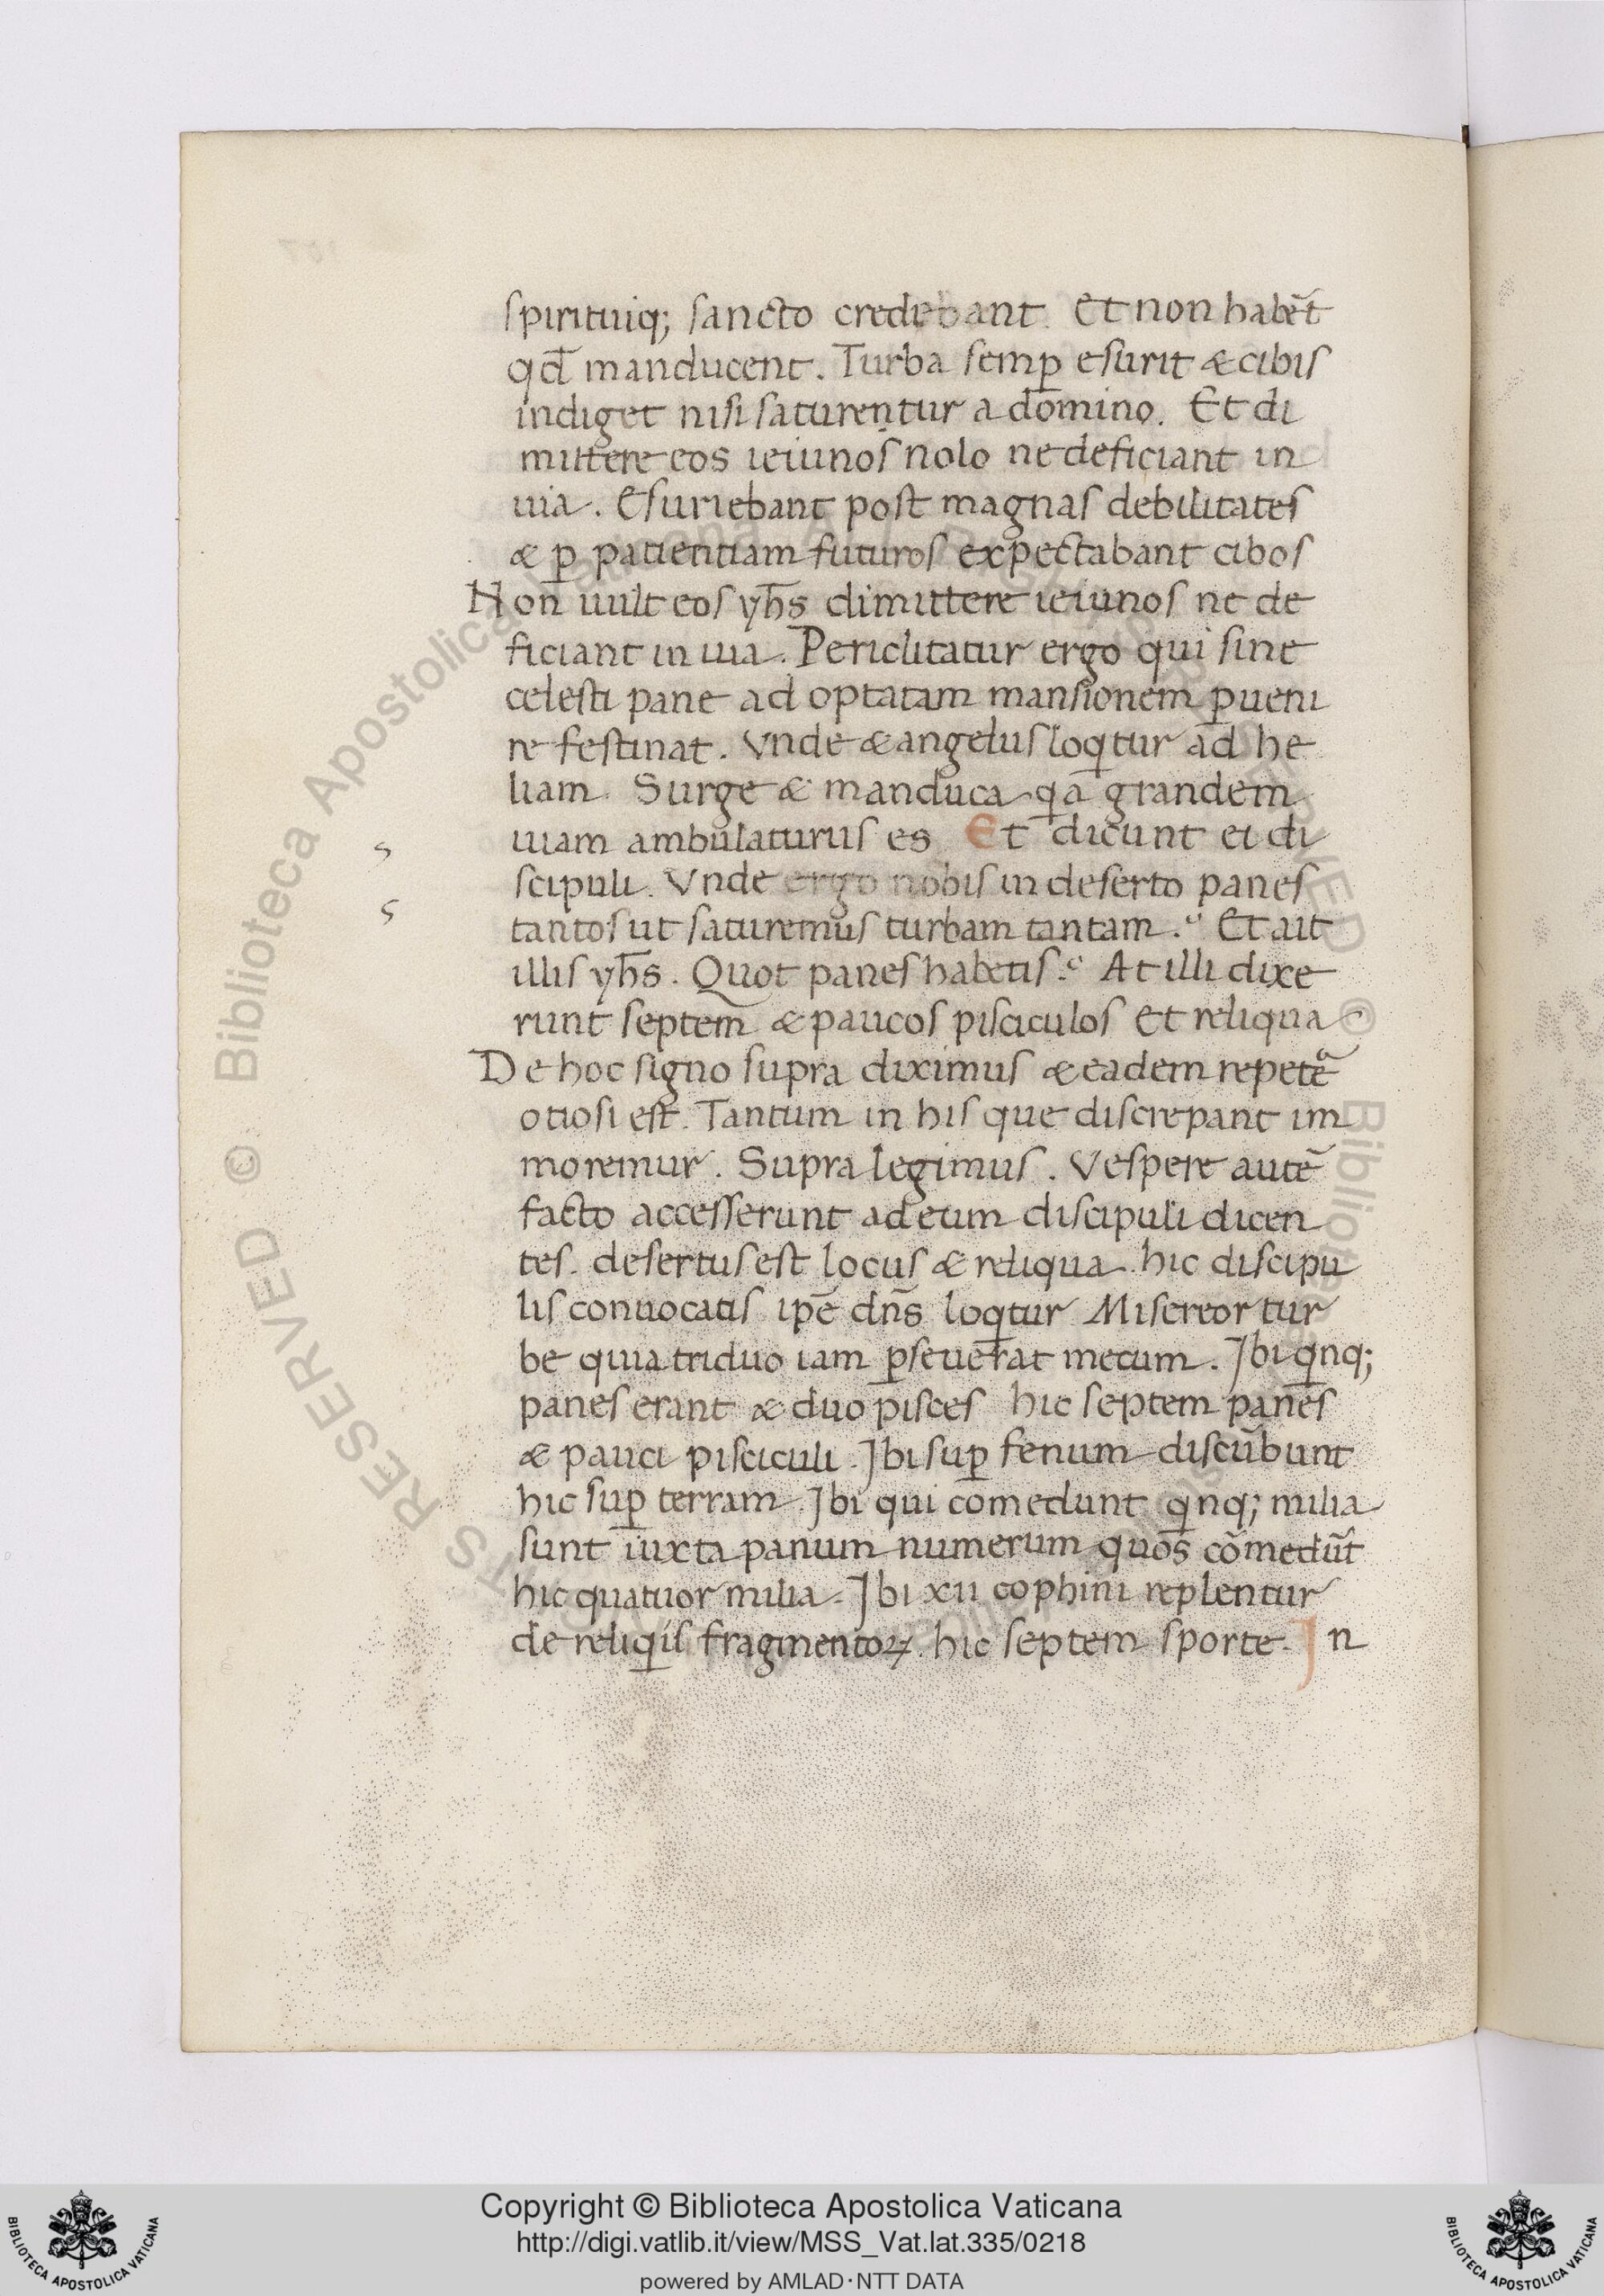 spirituiq; sancto credebant. Et non habēt
qd̄ manducent. Turba semꝑ esurit & cibis
indiget nisi saturentur a domino. Et di
mittere eos ieiunos nolo ne deficiant in
uia. Esuriebant post magnas debilitates
& ꝑ patientiam futuros expectabant cibos
Non uult eos yh̄s dimittere ieiunos ne de
ficiant in uia. Periclitatur ergo qui sine
celesti pane ad optatam mansionem ꝑueni
re festinat. Vnde & angelus loqͥtur ad he
liam. Surge & manduca qͥa grandem
uiam ambulaturus es. Et dicunt ei di
scipuli. Vnde ergo nobis in deserto panes
tantos ut saturemus turbam tantam? Et ait
illis yh̄s. Quot panes habetis? At illi dixe
runt septem & paucos pisciculos Et reliqua
De hoc signo supra diximus & eadem repetēͣ
otiosi est. Tantum in his que discrepant im
moremur. Supra legimus. Vespere autē
facto accesserunt ad eum discipuli dicen
tes. desertus est locus & reliqua. hic discipu
lis conuocatis ipē dn̄s loqͥtur Misereor tur
be quia triduo iam ꝑseuerat mecum. Ibi qͥnq;
panes erant & duo pisces hic septem panes
& pauci pisciculi. Ibi suꝑ fenum discūbunt
hic suꝑ terram. Ibi qui comedunt qͥnq; milia
sunt iuxta panum numerum quos cōmedūt
hic quatuor milia. Ibi xii cophini replentur
de reliqͥis fragmentoꝝ. hic septem sporte. In
Copyright © Biblioteca Apostolica Vaticana
http://digi.vatlib.it/view/MSS_Vat.lat.335/0218
powered by AMLAD·NTT DATA
BIBLIOTECA APOSTOLICA VATICANA
BIBLIOTECA APOSTOLICA VATICANA